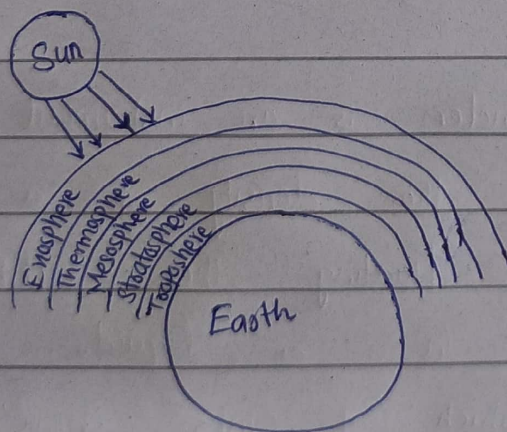 Sun
Enosphere
Thermosphere
Mesosphere
Staatasphere
Toaposhere
Eaoth